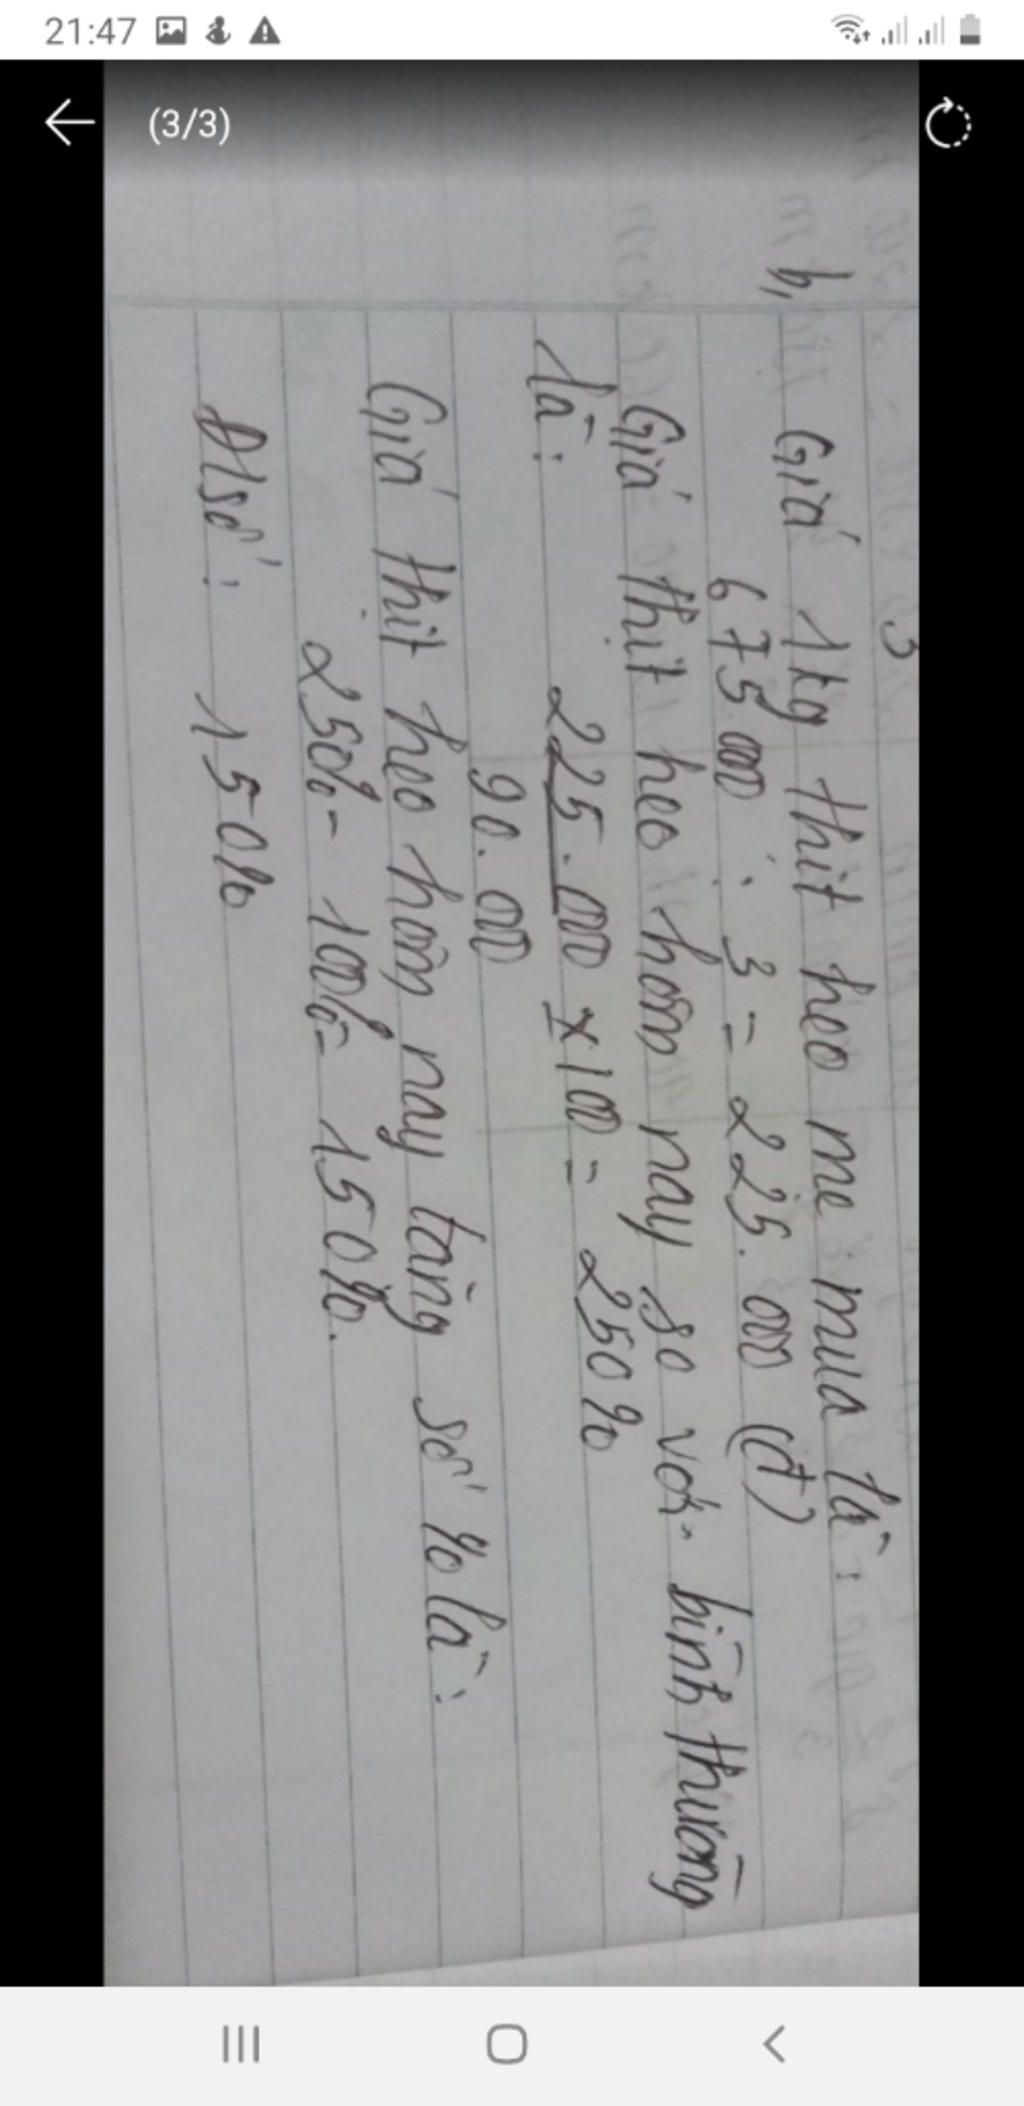 21:47
(3/3)
3
b, Giá 1kg thịt heo mẹ mua là:
675.000 : 3 = 225.000 (đ)
Giá thịt heo hôm nay so với bình thường
là: 225.000 x 100 = 250%
90.000
Giá thịt heo hôm nay tăng số % là:
250% - 100% = 150%.
Đ/số: 150%